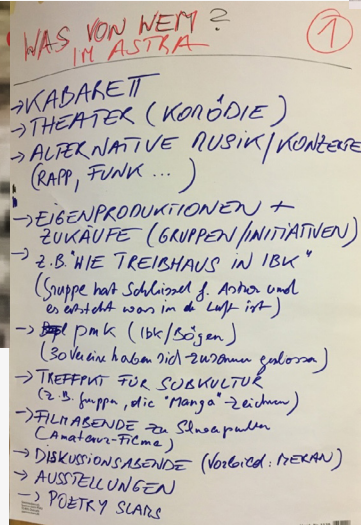 WAS VON WEM?
IM ASTRA
1
→ KABARETT
→ THEATER (KOMÖDIE)
→ ALTERNATIVE MUSIK/KONZERTE
(RAPP, FUNK ...)
→ EIGENPRODUKTIONEN +
ZUKÄUFE (GRUPPEN/INITIATIVEN)
→ z.B. "WIE TREIBHAUS IN IBK"
(Gruppe hat Schlüssel f. Astra und
es entsteht was in der Luft ist)
→ pmk (Ibk/Bögen)
(30 Vereine haben sich zusammen geschlossen)
→ TREFFPKT FÜR SUBKULTUR
(z.B. Gruppen, die "Manga" zeichnen)
→ FILMABENDE zu
(Amateur-Filme)
→ DISKUSSIONSABENDE (Vorbild: MERAN)
→ AUSSTELLUNGEN
→ POETRY SLAMS